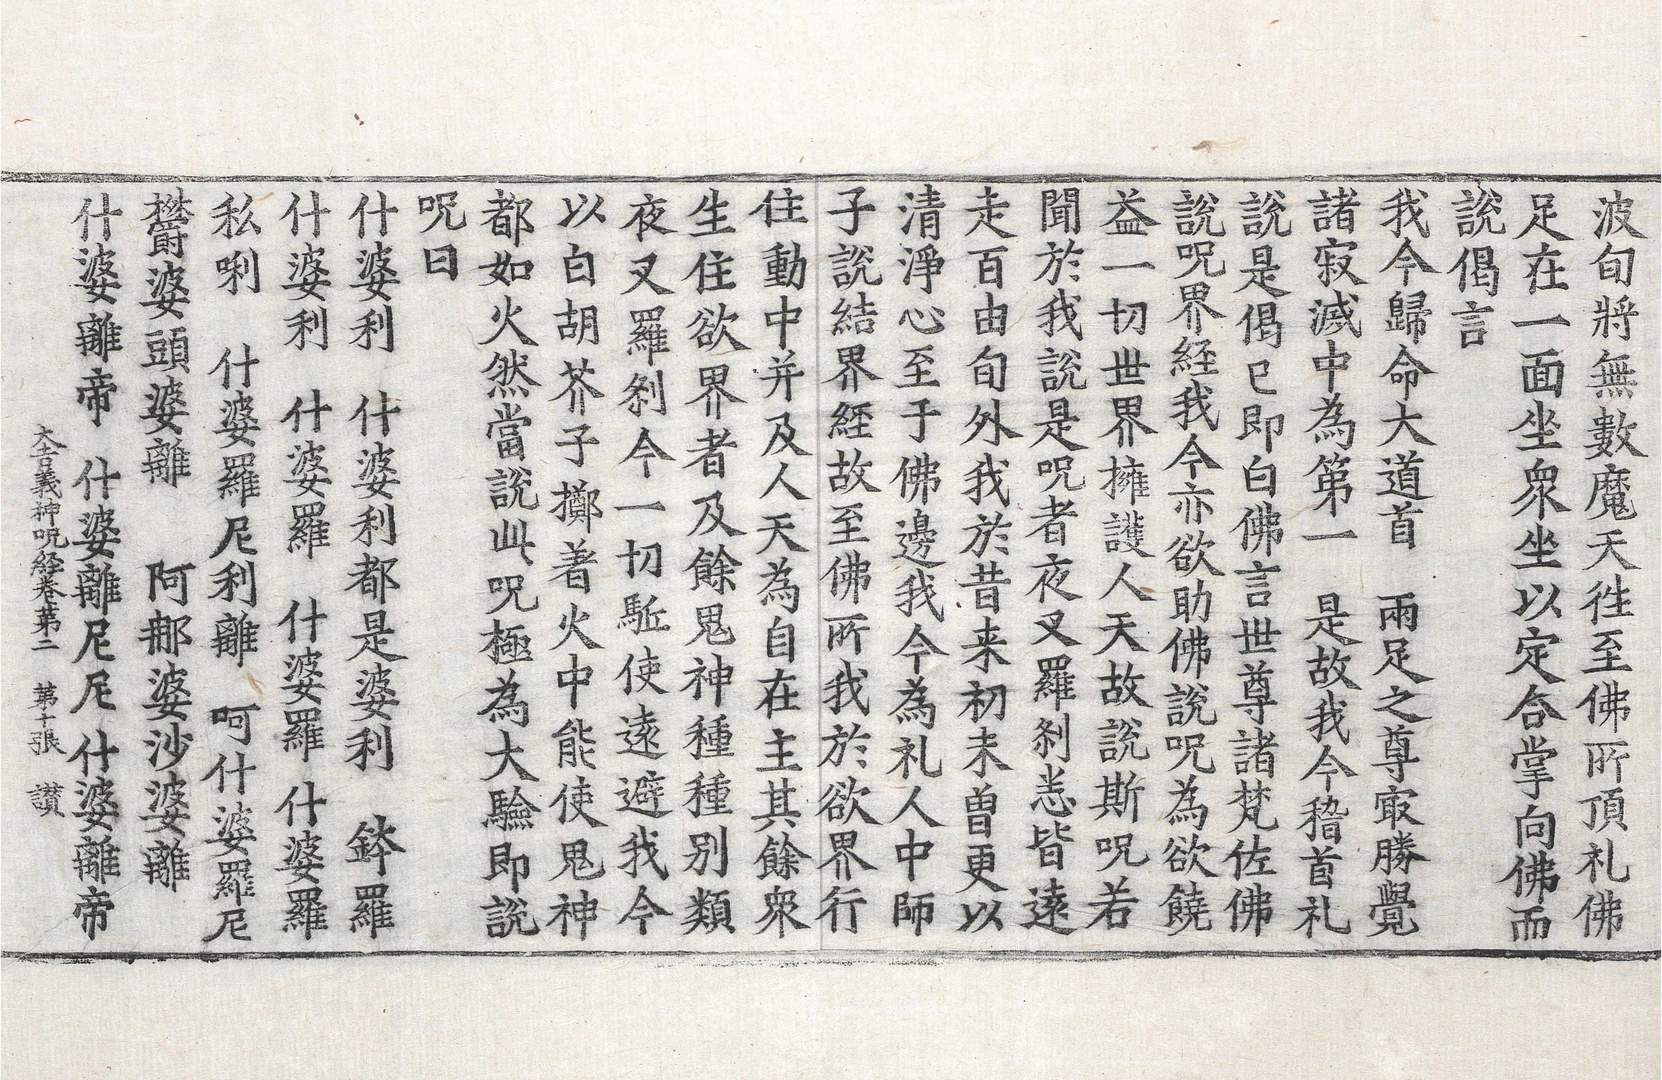 波旬將無數魔天徃至佛所頂礼佛
足在一面坐衆坐以定合掌向佛而
說偈言
我今歸命大道首　兩足之尊㝡勝覺
諸寂滅中為第一　是故我今稽首礼
說是偈已即白佛言世尊諸梵佐佛
說呪界經我今亦欲助佛說呪為欲饒
益一切世界擁護人天故說斯呪若
聞於我說是呪者夜叉羅剎悉皆遠
走百由旬外我於昔来初未曽更以
清淨心至于佛邊我今為礼人中師
子說結界經故至佛所我於欲界行
住動中并及人天為自在主其餘衆
生住欲界者及餘鬼神種種別類
夜叉羅剎今一切駈使遠避我今
以白胡芥子擲着火中能使鬼神
都如火然當說此呪極為大驗即說
呪曰
什婆利　什婆利都是婆利　鉢羅
什婆利　什婆羅　什婆羅　什婆羅
私唎　什婆羅尼利離　呵什婆羅尼
欝婆頭婆離　阿那婆沙婆離
什婆離帝　什婆離尼尼什婆離帝
大吉義神呪経卷第二　第十張　讃